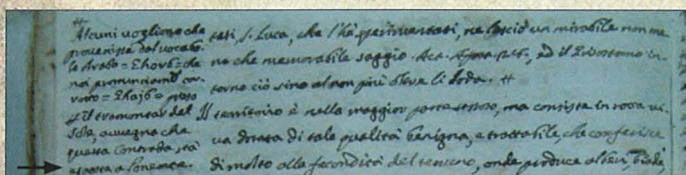 Alcuni vogliono che
provenisse dal vocabo
lo Arabo = Ghorb = che
noi pronunciamo
il tramontar del
Sole, avvegna che
questa Contrada, stà
a Ponente.
tati, S. Luca, che l'hà sperimentati, ne lasciò un mirabile non me
no che memorabile saggio. Act. Apos. ed il Grisostomo in
torno ciò sino al non più oltre li loda.
Il terreno è nella maggior parte sassoso, ma consiste in rocca vi
va dotata di tale qualità benigna, e trattabile, che conferisce
di molto alla fecondità del terreno, onde produce ulivi, biade,